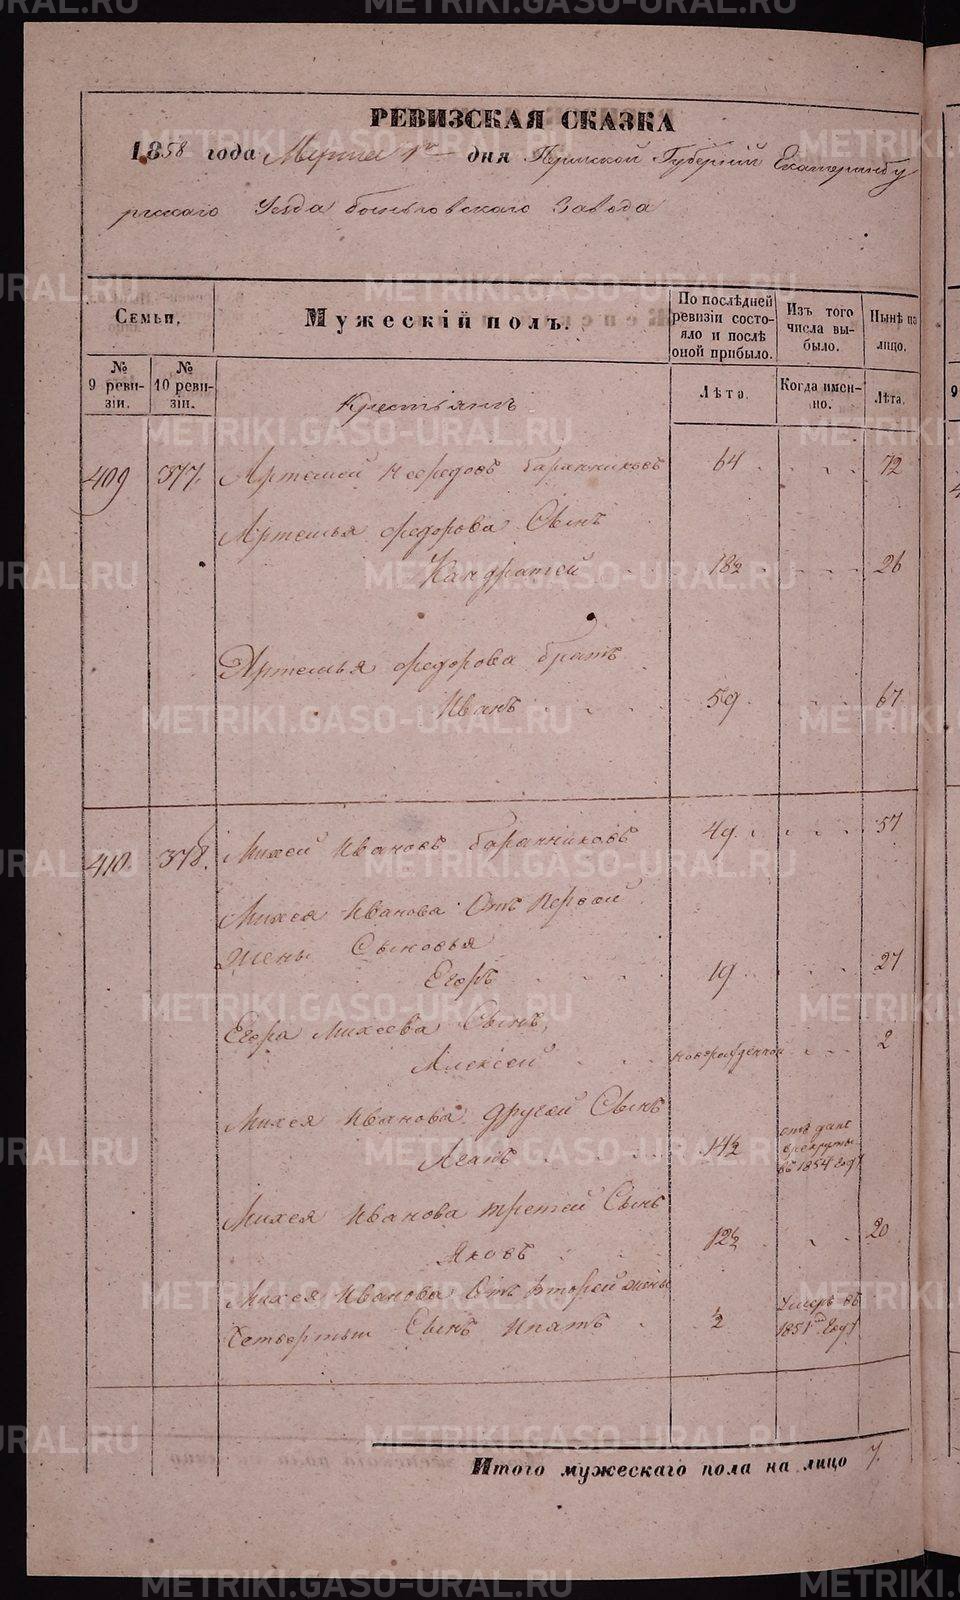 РЕВИЗСКАЯ СКАЗКА
1858 года Марта 1го дня Пермской Губернии Екатеринбу
ргскаго Уезда Заведа
Семьи.
Мужескій полъ.
По послѣдней ревизіи состояло и послѣ оной прибыло.
Изъ того числа выбыло.
Нынѣ на лицо.
№ 9 ревизіи.
№ 10 ревизіи.
Лѣта.
Когда именно.
Лѣта.
Крестьянъ
409 377. Артемей Феодоровъ Баранниковъ 64 72
Артемья Федорова Сынъ
Кандратей 18½ 26
Артемья Федорова братъ
Иванъ 59 67
410. 378. Михей Ивановъ Баранниковъ 49 57
Михея Иванова Отъ Первой
Жены Сыновья
Егоръ 19 27
Егора Михеева Сынъ,
Алексей новорожденной 2
Михея Иванова другей Сынъ
14½ отъ данъ
в рекруты
въ 1854 году
Михея Иванова третей Сынъ
Яковъ 12½ 20
Михея Иванова Отъ Второй жены
Четвертый Сынъ Ипатъ ½ Умеръ въ
1851м Году
Итого мужескаго пола на лицо 7.
METRIKI.GASO-URAL.RU